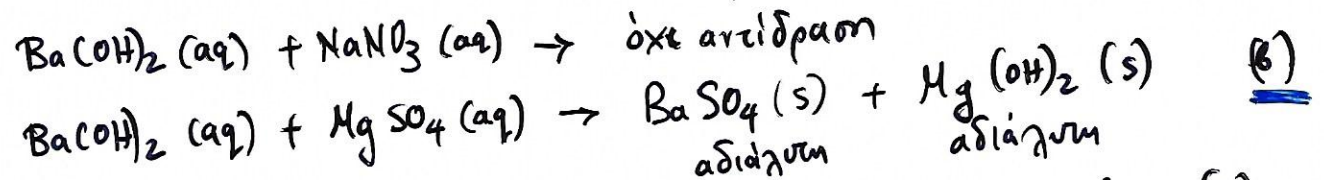 Ba(OH)₂ (aq) + NaNO₃ (aq) → όχι αντίδραση
Ba(OH)₂ (aq) + MgSO₄ (aq) → BaSO₄ (s) + Mg(OH)₂ (s) (β)
αδιάλυτη αδιάλυτη